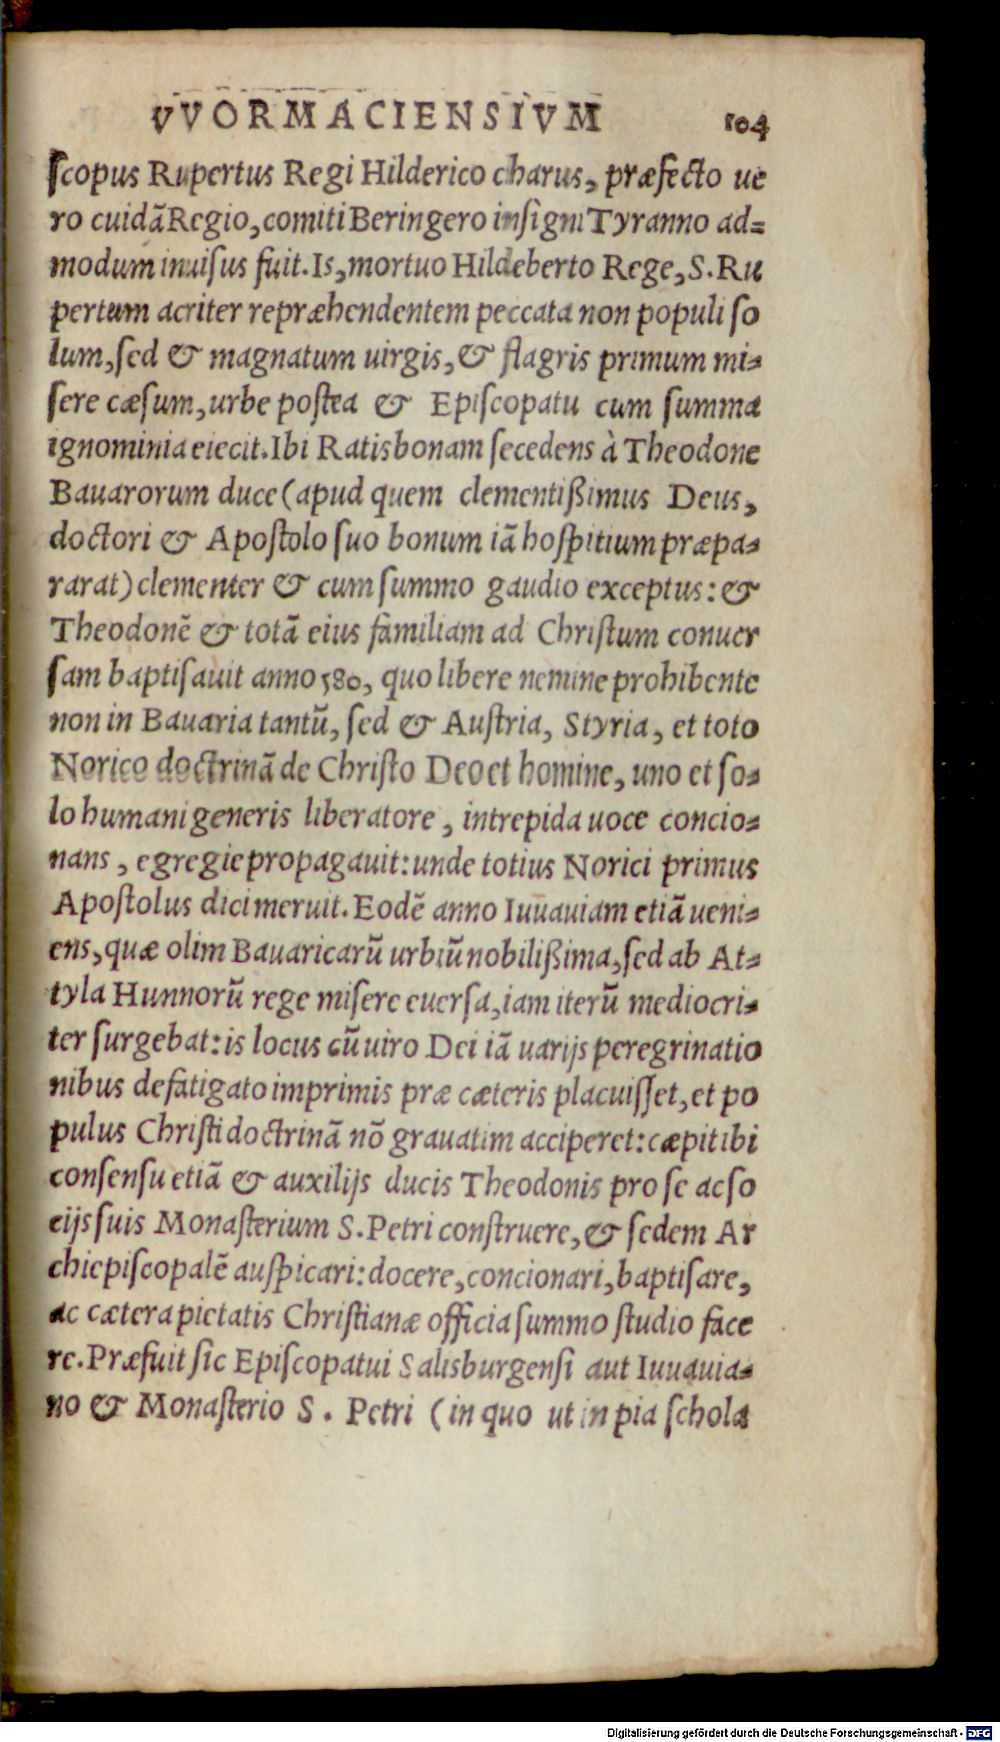 VVORMACIENSIVM 104
ſcopus Rupertus Regi Hilderico charus, præfecto ue
ro cuidã Regio, comiti Beringero inſigni Tyranno ad=
modum inuiſus fuit. Is, mortuo Hildeberto Rege, S. Ru
pertum acriter repræhendentem peccata non populi ſo
lum, ſed & magnatum uirgis, & flagris primum mi=
ſere cæſum, urbe poſtea & Epiſcopatu cum ſumma
ignominia eiecit. Ibi Ratisbonam ſecedens à Theodone
Bauarorum duce (apud quem clementißimus Deus,
doctori & Apoſtolo ſuo bonum iã hoſpitium præpa=
rarat) clementer & cum ſummo gaudio exceptus: &
Theodonẽ & totã eius familiam ad Chriſtum conuer
ſam baptiſauit anno 580, quo libere nemine prohibente
non in Bauaria tantũ, ſed & Auſtria, Styria, et toto
Norico doctrinã de Chriſto Deo et homine, uno et ſo=
lo humani generis liberatore, intrepida uoce concio=
nans, egregie propagauit: unde totius Norici primus
Apoſtolus dici meruit. Eodẽ anno Iuuauiam etiã ueni=
ens, quæ olim Bauaricarũ urbiũ nobilißima, ſed ab At=
tyla Hunnorũ rege miſere euerſa, iam iterũ mediocri=
ter ſurgebat: is locus cũ uiro Dei iã uarijs peregrinatio
nibus defatigato imprimis præ cæteris placuiſſet, et po
pulus Chriſti doctrinã nõ grauatim acciperet: cæpit ibi
conſenſu etiã & auxilijs ducis Theodonis pro ſe ac ſo
cijs ſuis Monaſterium S. Petri conſtruere, & ſedem Ar
chiepiſcopalẽ auſpicari: docere, concionari, baptiſare,
ac cætera pietatis Chriſtianæ officia ſummo ſtudio face
re. Præfuit ſic Epiſcopatui Salisburgenſi aut Iuuauia=
no & Monaſterio S. Petri (in quo ut in pia ſchola
Digitalisierung gefördert durch die Deutsche Forschungsgemeinschaft - DFG